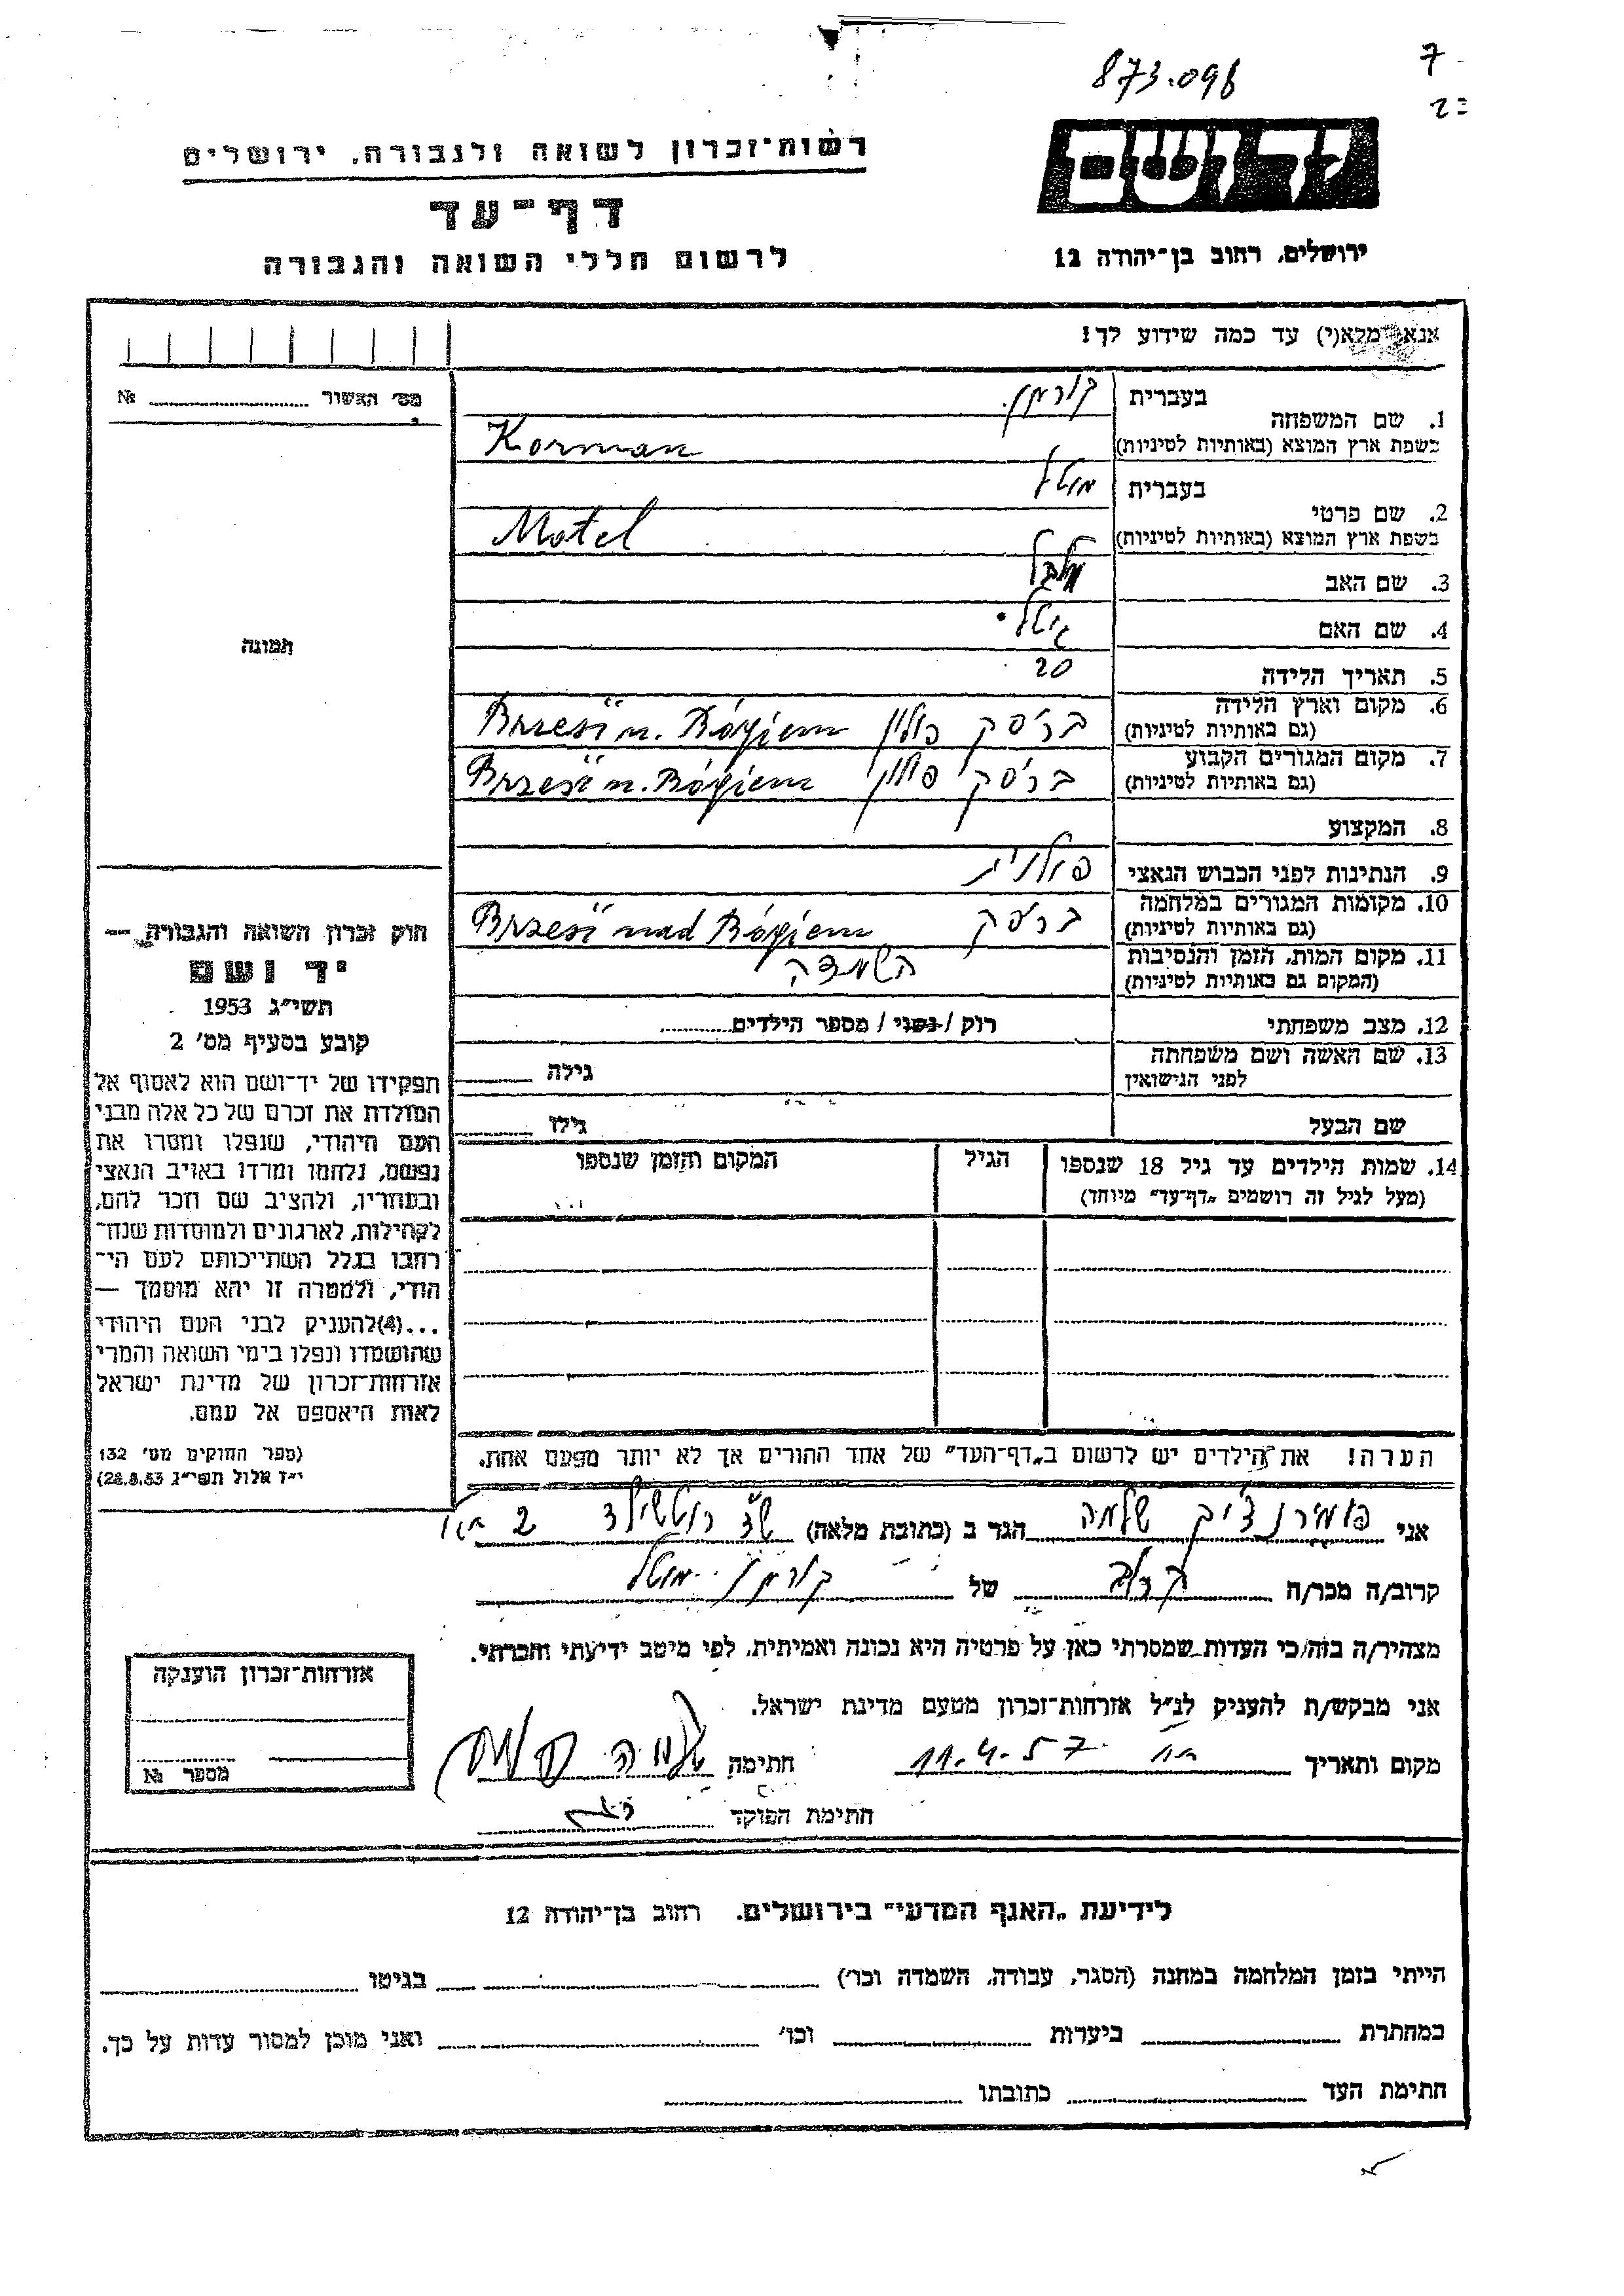 873.098
7
רשות־זכרון לשואה ולגבורה, ירושלים
יד ושם
דף־עד
לרשום חללי השואה והגבורה
ירושלים, רחוב בן־יהודה 12
אנא מלא(י) עד כמה שידוע לך!
מס׳ האשור № 
בעברית קורמן
1. שם המשפחה
בשפת ארץ המוצא (באותיות לטיניות) Korman
בעברית מוטל
2. שם פרטי
בשפת ארץ המוצא (באותיות לטיניות) Motel
3. שם האב
4. שם האם
תמונה
5. תאריך הלידה 20
6. מקום וארץ הלידה
(גם באותיות לטיניות) בריסק פולין Brześć n. Bógiem
7. מקום המגורים הקבוע
(גם באותיות לטיניות) בריסק פולין Brześć n. Bógiem
8. המקצוע
9. הנתינות לפני הכבוש הנאצי פולנית
10. מקומות המגורים במלחמה
(גם באותיות לטיניות) בריסק Brześć nad Bógiem
11. מקום המות, הזמן והנסיבות
(המקום גם באותיות לטיניות) השמדה
12. מצב משפחתי רוק / נשוי / מספר הילדים
13. שם האשה ושם משפחתה
לפני הנישואין גילה
שם הבעל גילו
14. שמות הילדים עד גיל 18 שנספו הגיל המקום והזמן שנספו
(מעל לגיל זה רושמים „דף־עד״ מיוחד)
חוק זכרון השואה והגבורה —
יד ושם
תשי״ג 1953
קובע בסעיף מס׳ 2
תפקידו של יד־ושם הוא לאסוף אל
המולדת את זכרם של כל אלה מבני
העם היהודי, שנפלו ומסרו את
נפשם, נלחמו ומרדו באויב הנאצי
ובעוזריו, ולהציב שם וזכר להם,
לקהילות, לארגונים ולמוסדות שנח־
רבו בגלל השתייכותם לעם הי־
הודי, ולמטרה זו יהא מוסמך —
...(4)להעניק לבני העם היהודי
שהושמדו ונפלו בימי השואה והמרי
אזרחות־זכרון של מדינת ישראל
לאות היאספם אל עמם.
(ספר החוקים מס׳ 132
י״ז אלול תשי״ג 28.8.53)
הערה! את הילדים יש לרשום ב„דף־העד״ של אחד ההורים אך לא יותר מפעם אחת.
אני שלמה הגר ב (כתובת מלאה) 2
קרוב/ה מכר/ה קרוב של קורמן מוטל
מצהיר/ה בזה/כי העדות שמסרתי כאן על פרטיה היא נכונה ואמיתית, לפי מיטב ידיעתי והכרתי.
אני מבקש/ת להעניק לנ״ל אזרחות־זכרון מטעם מדינת ישראל.
מקום ותאריך 11.4.57 חתימה
חתימת הפוקד
אזרחות־זכרון הוענקה
מספר №
לידיעת „האגף המדעי״ בירושלים, רחוב בן־יהודה 12
הייתי בזמן המלחמה במחנה (הסגר, עבודה, השמדה וכו׳) בגיטו
במחתרת ביערות וכו׳ ואני מוכן למסור עדות על כך.
חתימת העד כתובתו